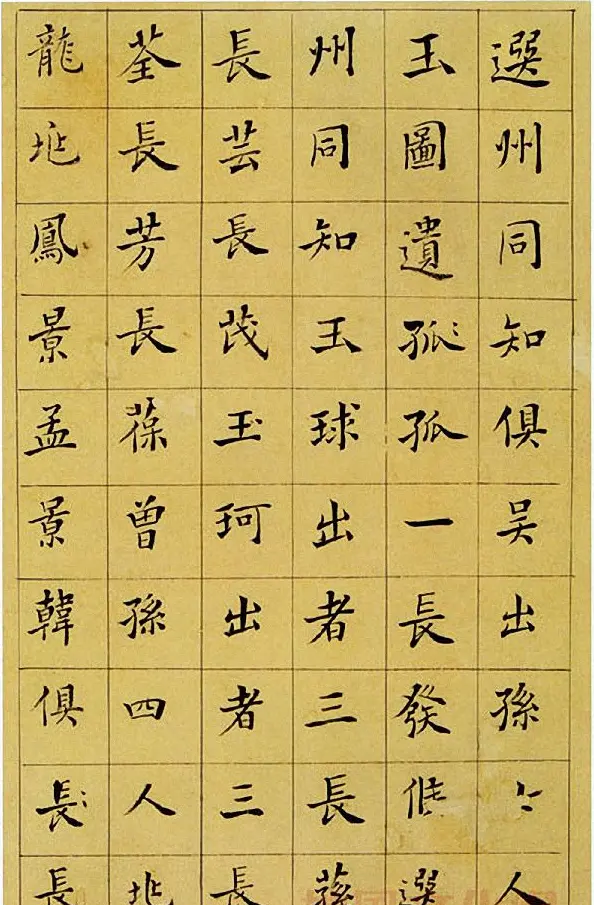 選州同知俱吳出孫人
玉圖遺孤孤一長發候選
州同知玉球出者三長蓀
長芸長茂玉珂出者三長
荃長芳長葆曾孫四人兆
龍兆鳳景孟景韓俱長長